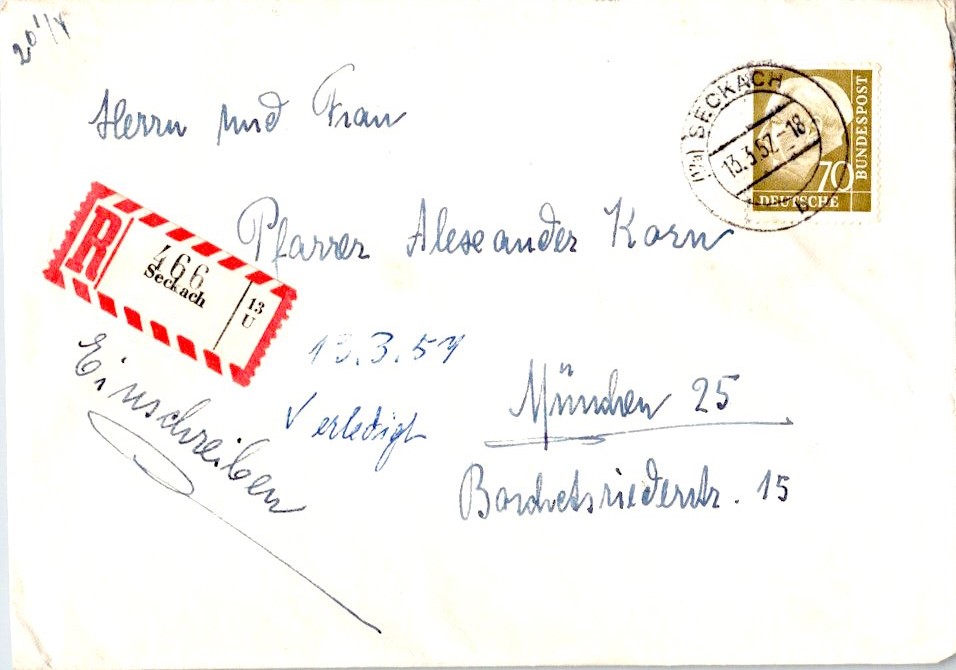 Herrn und Frau
SECKACH
13.3.57.-18
b
70
BUNDESPOST
DEUTSCHE
Pfarrer Alexander Korn
R
466
Seckach
13
U
Einschreiben
13.3.57
erledigt
München 25
15